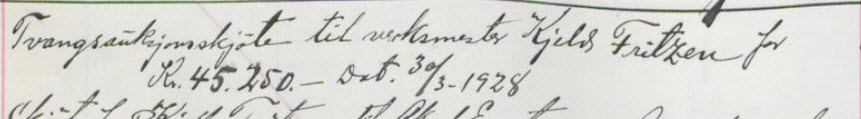 Tvangsauksjonsskjøte til verksmester Kjeld Fritzen for
Kr. 45.250.— Dat. 30/3-1928